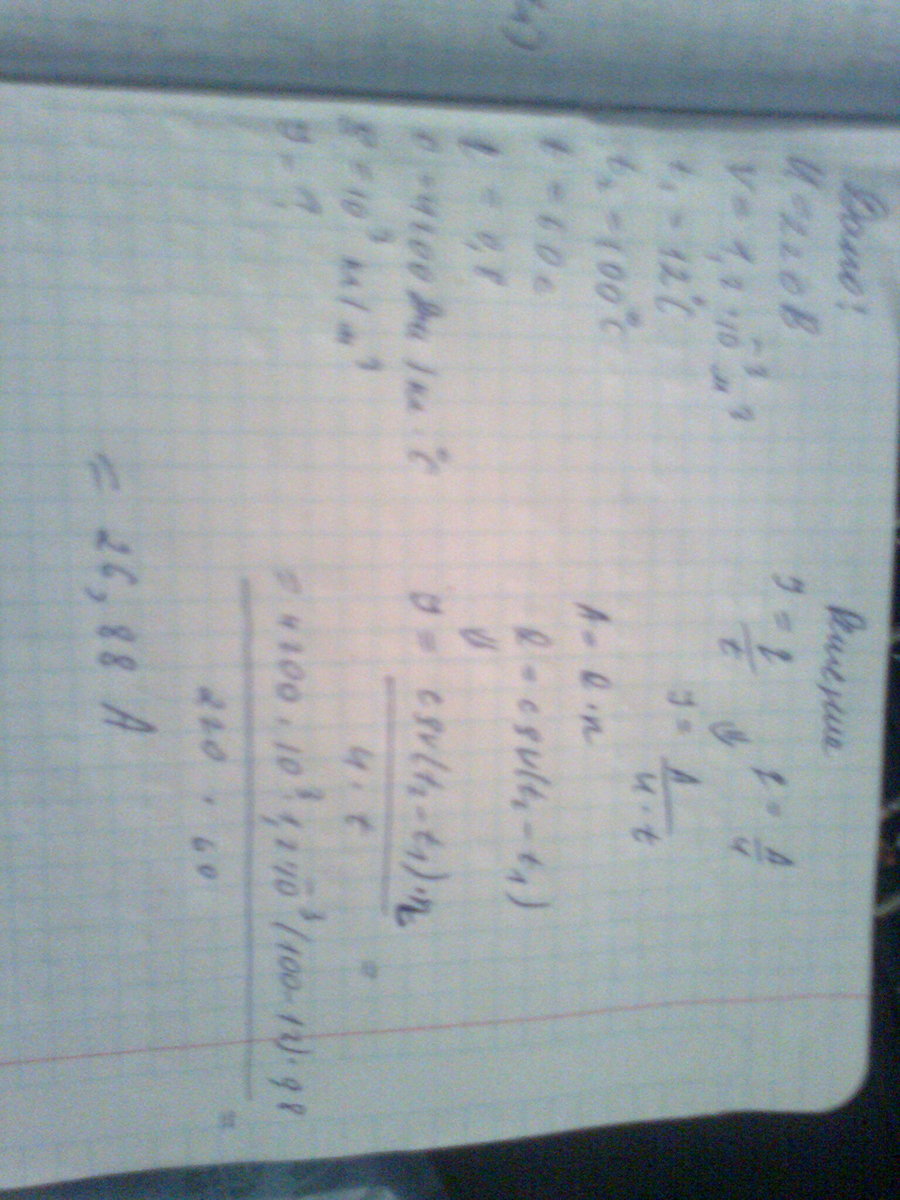 Дано:
U = 220 В
V = 1,2 · 10⁻³ м³
t₁ = 12°C
t₂ = 100°C
t = 60 с
= 0,8
c = 4200 Дж/кг·°C
= 10³ кг/м³
J = ?
Решение
J = q/t q = A/U
⇓
J = A/U·t
A = Q·η
Q = cρV(t₂ - t₁)
⇓
J = cρV(t₂ - t₁)·η / U·t =
= 4200·10³·1,2·10⁻³(100-12)·0,8 / 220·60 =
= 26,88 A